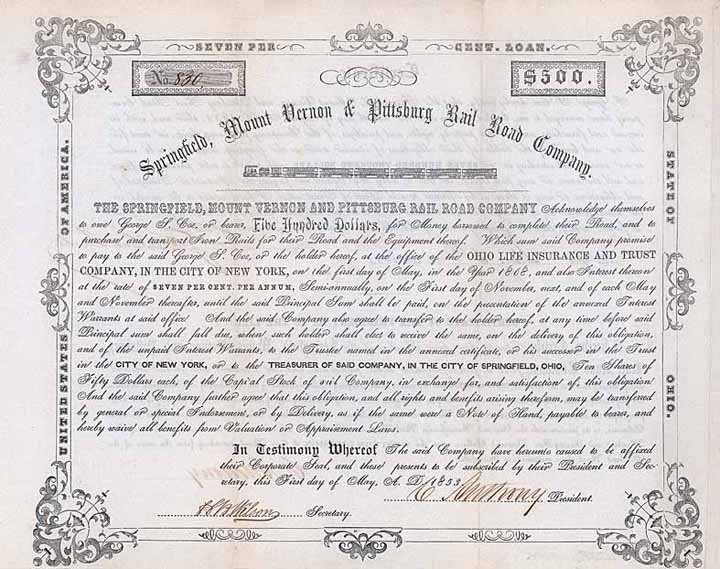 SEVEN PER CENT. LOAN.
No. 830
$500.
Springfield, Mount Vernon & Pittsburg Rail Road Company.
THE SPRINGFIELD, MOUNT VERNON AND PITTSBURG RAIL ROAD COMPANY Acknowledge themselves
to owe George S. Coe, or bearer, Five Hundred Dollars, for Money borrowed to complete their Road, and to
purchase and transport Iron Rails for their Road and the Equipment thereof. Which sum said Company promise
to pay to the said George S. Coe, or the holder hereof, at the office of the OHIO LIFE INSURANCE AND TRUST
COMPANY, IN THE CITY OF NEW YORK, on the first day of May, in the Year 1868, and also Interest thereon
at the rate of SEVEN PER CENT. PER ANNUM, Semi-annually, on the First day of November, next, and of each May
and November thereafter, until the said Principal Sum shall be paid, on the presentation of the annexed Interest
Warrants at said office. And the said Company also agree to transfer to the holder hereof, at any time before said
Principal sum shall fall due, when such holder shall elect to receive the same, on the delivery of this obligation,
and of the unpaid Interest Warrants, to the Trustee named in the annexed certificate, or his successor in the Trust
in the CITY OF NEW YORK, or to the TREASURER OF SAID COMPANY, IN THE CITY OF SPRINGFIELD, OHIO, Ten Shares of
Fifty Dollars each, of the Capital Stock of said Company, in exchange for, and satisfaction of, this obligation.
And the said Company further agree that this obligation, and all rights and benefits arising therefrom, may be transferred
by general or special Indorsement, or by Delivery, as if the same were a Note of Hand, payable to bearer, and
hereby waive all benefits from Valuation or Appraisement Laws.
In Testimony Whereof The said Company have hereunto caused to be affixed
their Corporate Seal, and these presents to be subscribed by their President and Sec-
retary, this First day of May, A. D. 1853.
President.
Secretary.
UNITED STATES OF AMERICA.
STATE OF OHIO.